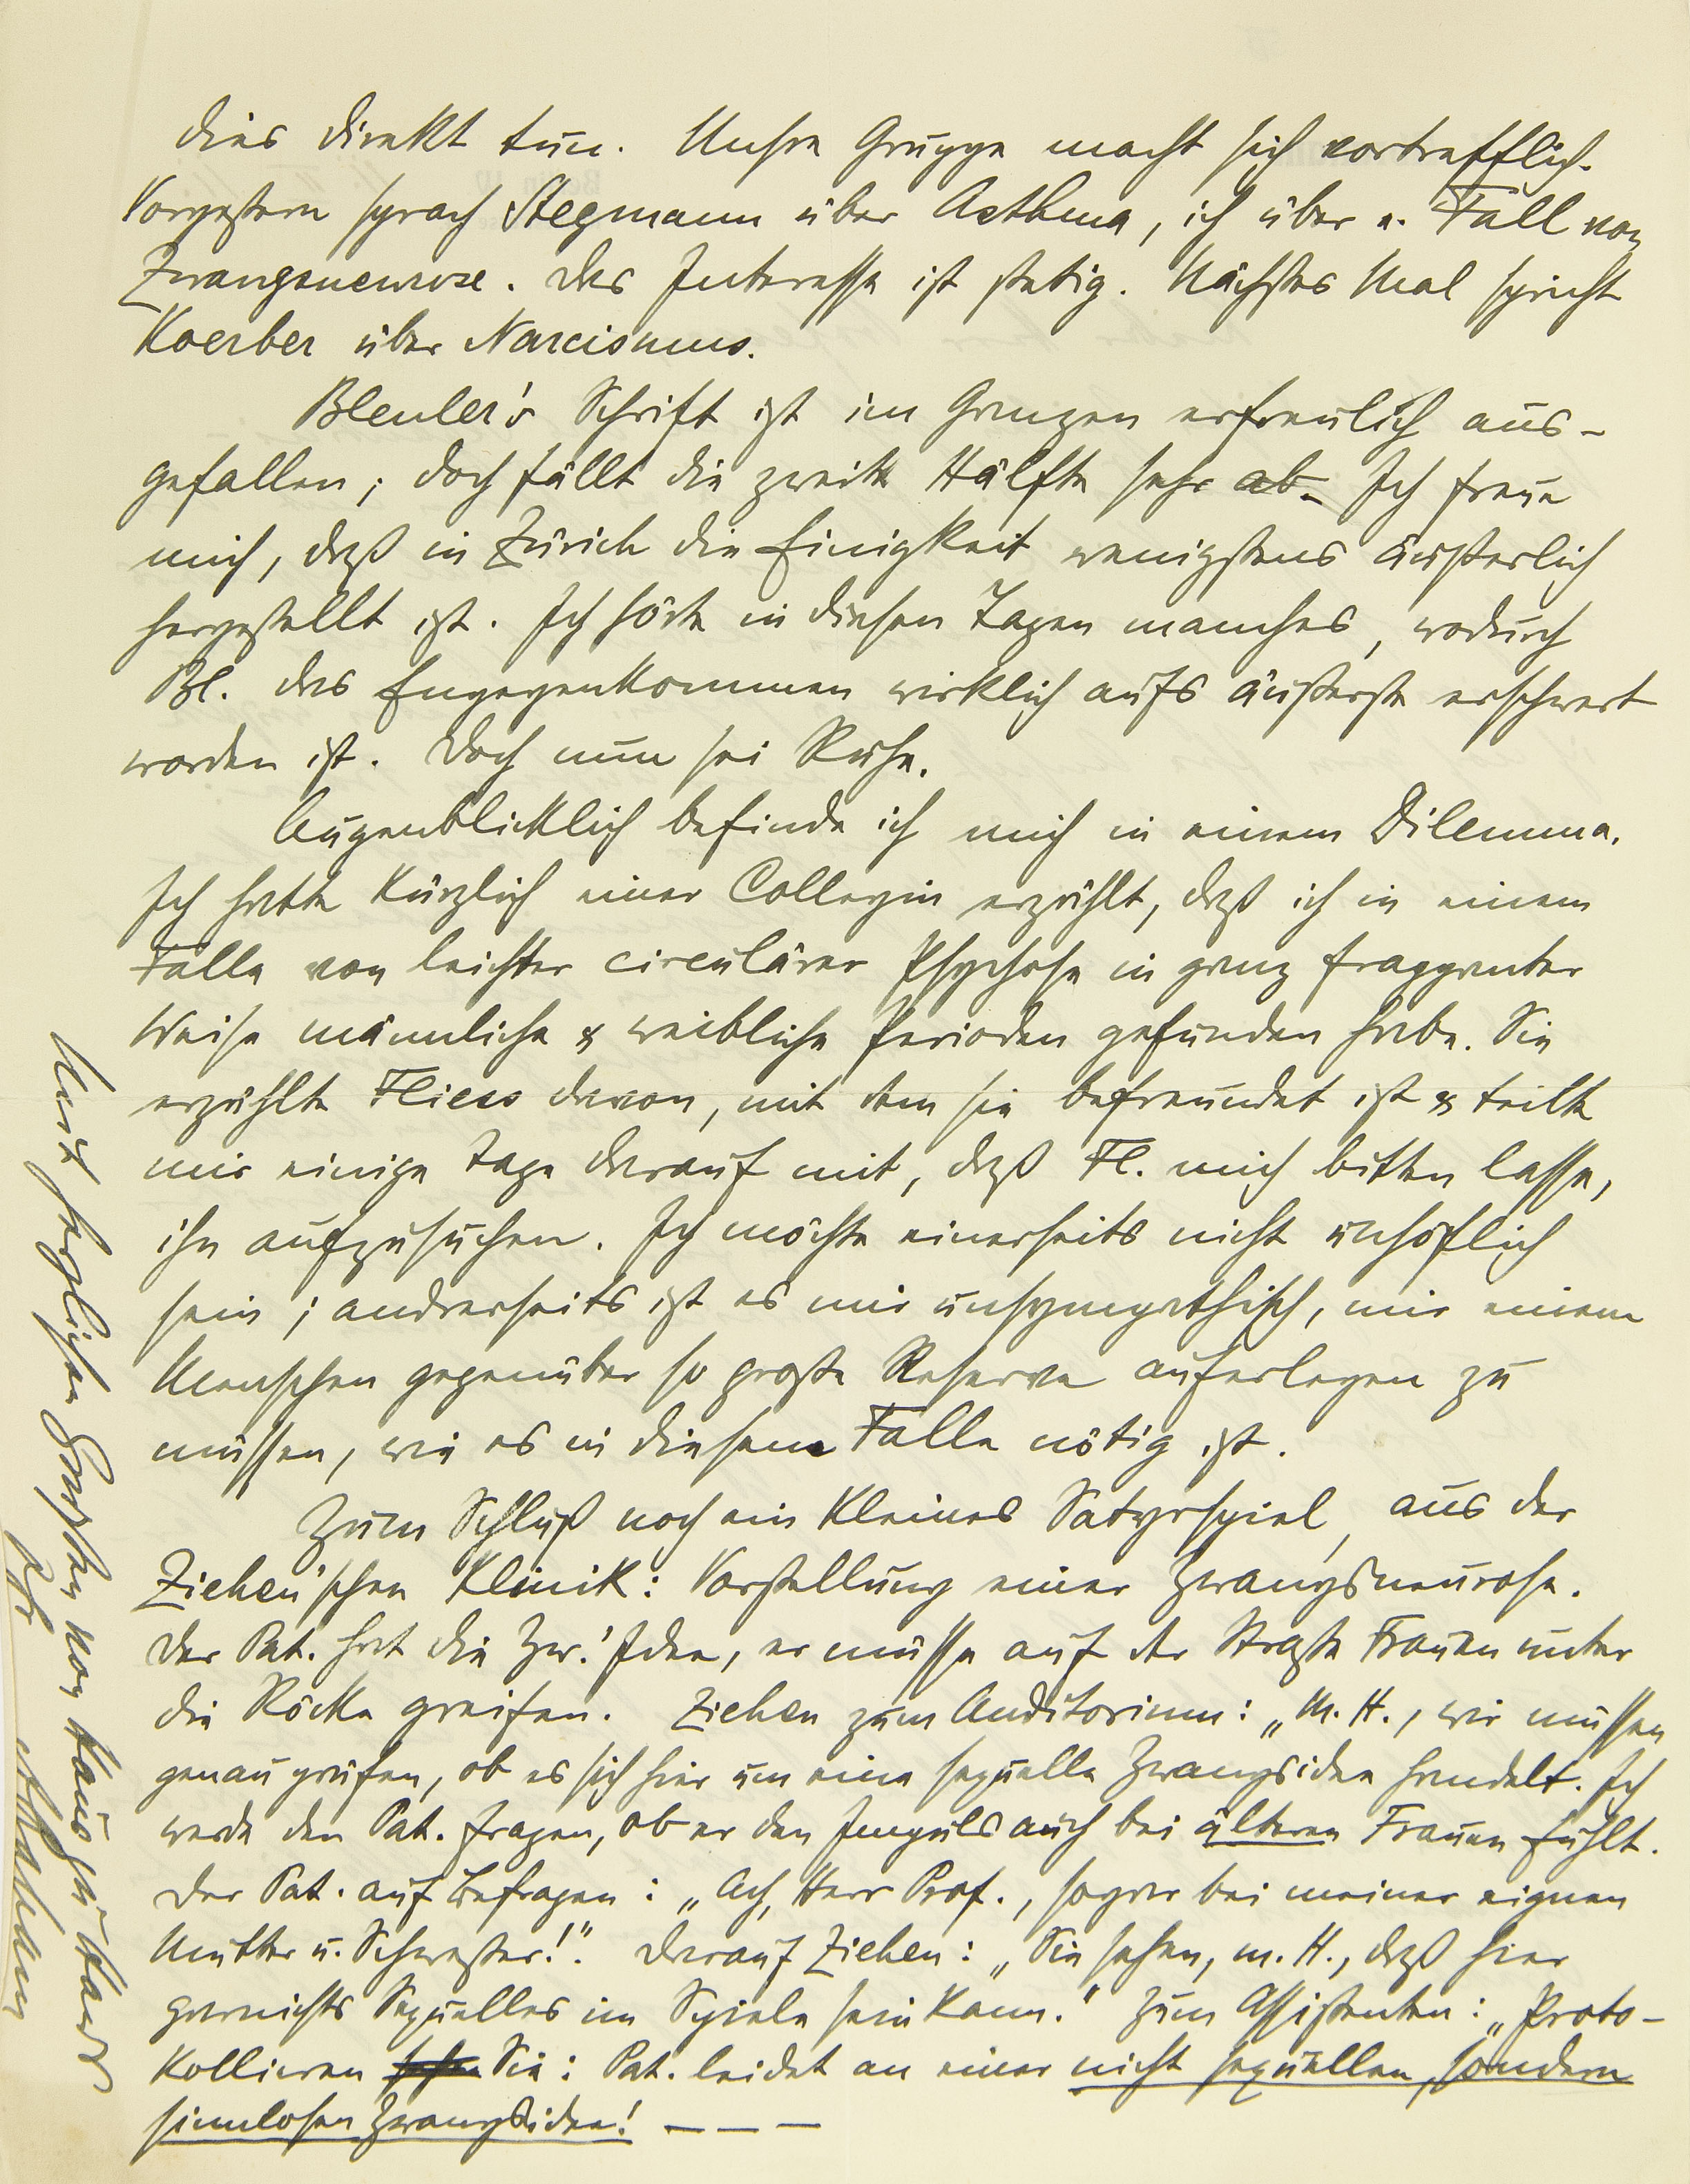 dies direkt tun. Unsre Gruppe macht sich vortrefflich.
Vorgestern sprach Stegmann über Asthma, ich über e. Fall von
Zwangsneurose. Das Interesse ist stetig. Nächstes Mal spricht
Koerber über Narcismus.
Bleuler's Schrift ist im Ganzen erfreulich aus-
gefallen; doch fällt die zweite Hälfte sehr ab. Ich freue
mich, daß in Zürich die Einigkeit wenigstens äußerlich
hergestellt ist. Ich hörte in diesen Tagen manches, wodurch
Bl. das Engegenkommen wirklich aufs äußerste erschwert
worden ist. Doch nun sei Ruhe.
Augenblicklich befinde ich mich in einem Dilemma.
Ich hatte kürzlich einer Collegin erzählt, daß ich in einem
Falle von leichter circulärer Psychose in ganz frappanter
Weise männliche & weibliche Perioden gefunden habe. Sie
erzählte Fliess davon, mit dem sie befreundet ist & teilte
mir einige Tage darauf mit, daß Fl. mich bitten lasse,
ihn aufzusuchen. Ich möchte einerseits nicht unhöflich
sein; andrerseits ist es mir unsympathisch, mir einem
Menschen gegenüber so große Reserve auferlegen zu
müssen, wie es in diesem Falle nötig ist.
Zum Schluß noch ein kleines Satyrspiel, aus der
Ziehen'schen Klinik: Vorstellung einer Zwangsneurose.
Der Pat. hat die Zw.'Idee, er müsse auf der Straße Frauen unter
die Röcke greifen. Ziehen zum Auditorium: „M. H., wir müssen
genau prüfen, ob es sich hier um eine sexuelle Zwangsidee handelt. Ich
werde den Pat. fragen, ob er den Impuls auch bei älteren Frauen fühlt.
Der Pat. auf Befragen: „Ach, Herr Prof., sogar bei meiner eignen
Mutter u. Schwester!". Darauf Ziehen: „Sie sehen, m. H., daß hier
garnichts Sexuelles im Spiele sein kann." Zum Assistenten: „Proto-
kollieren Sie: Pat. leidet an einer nicht sexuellen, sondern
sinnlosen Zwangsidee! — — —
Mit herzlichen Grüßen von Haus zu Haus
Ihr
Abraham